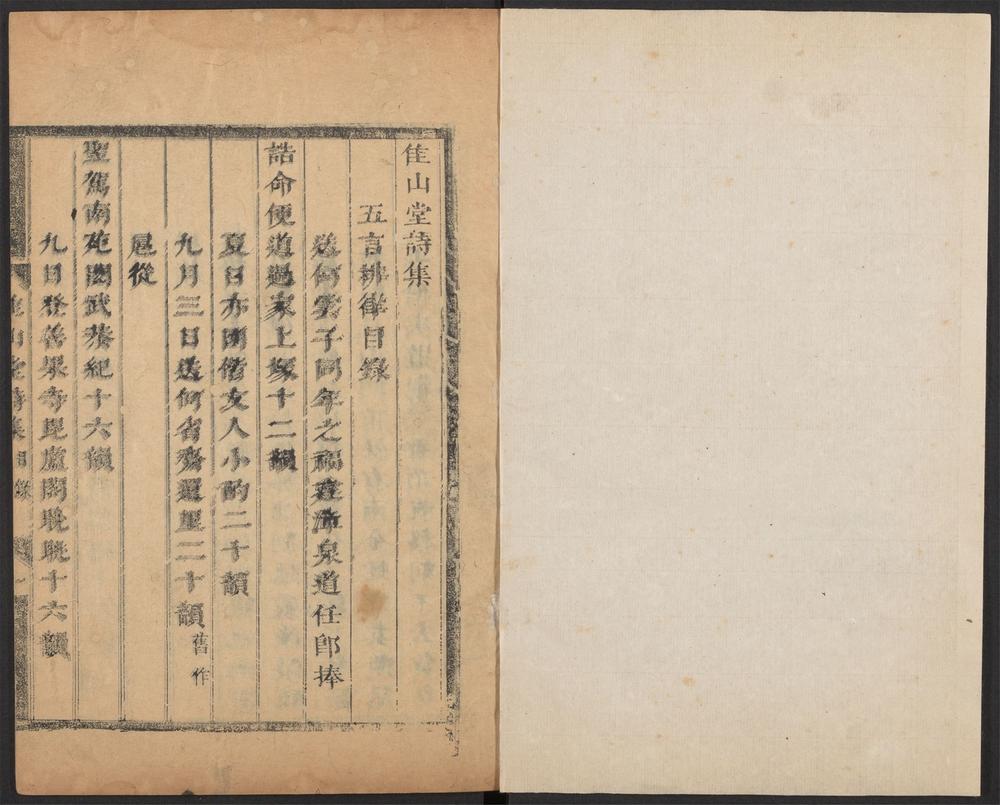 佳山堂詩集
五言排律目錄
送何雲子同年之福建漳泉道任卽捧
誥命便道過家上塚十二韻
夏日亦園偕友人小酌二十韻
九月三日送何省齋還里二十韻舊作
扈從
聖駕南苑閱武恭紀十六韻
九日登善果寺毘盧閣晚眺十六韻
佳山堂詩集 目錄 一